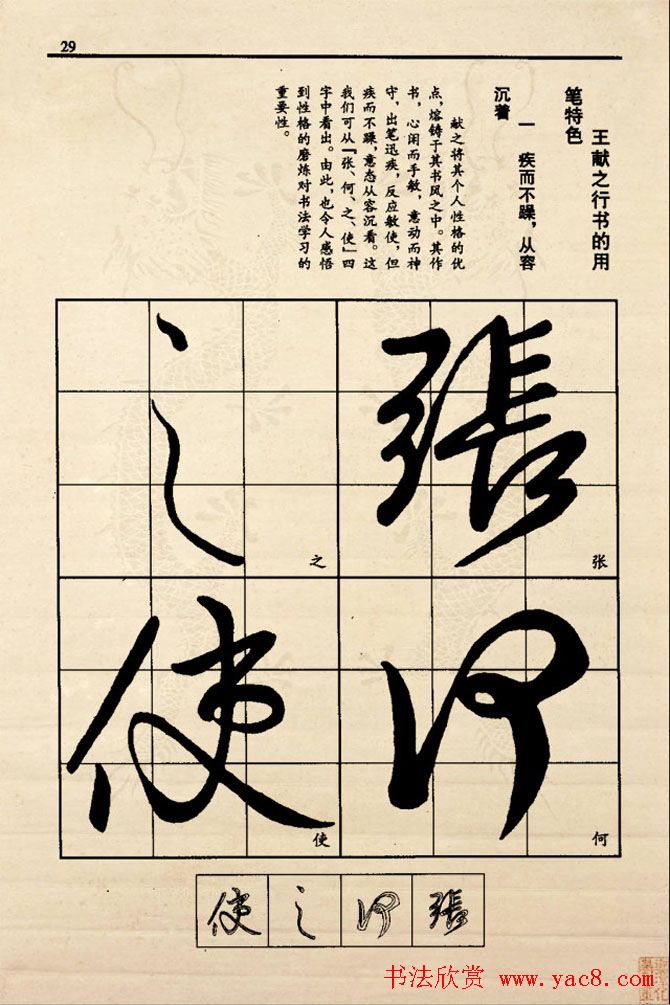 29
王献之行书的用
笔特色
一 疾而不躁，从容
沉着
献之将其个人性格的优
点，熔铸于其书风之中。其作
书，心闲而手敏，意动而神
守，出笔迅疾，反应敏使，但
疾而不躁，意态从容沉看。这
我们可从「张、何、之、使」四
字中看出。由此，也令人感悟
到性格的磨炼对书法学习的
重要性。
張
张
何
何
之
之
使
使
使之何張
书法欣赏 www.yac8.com